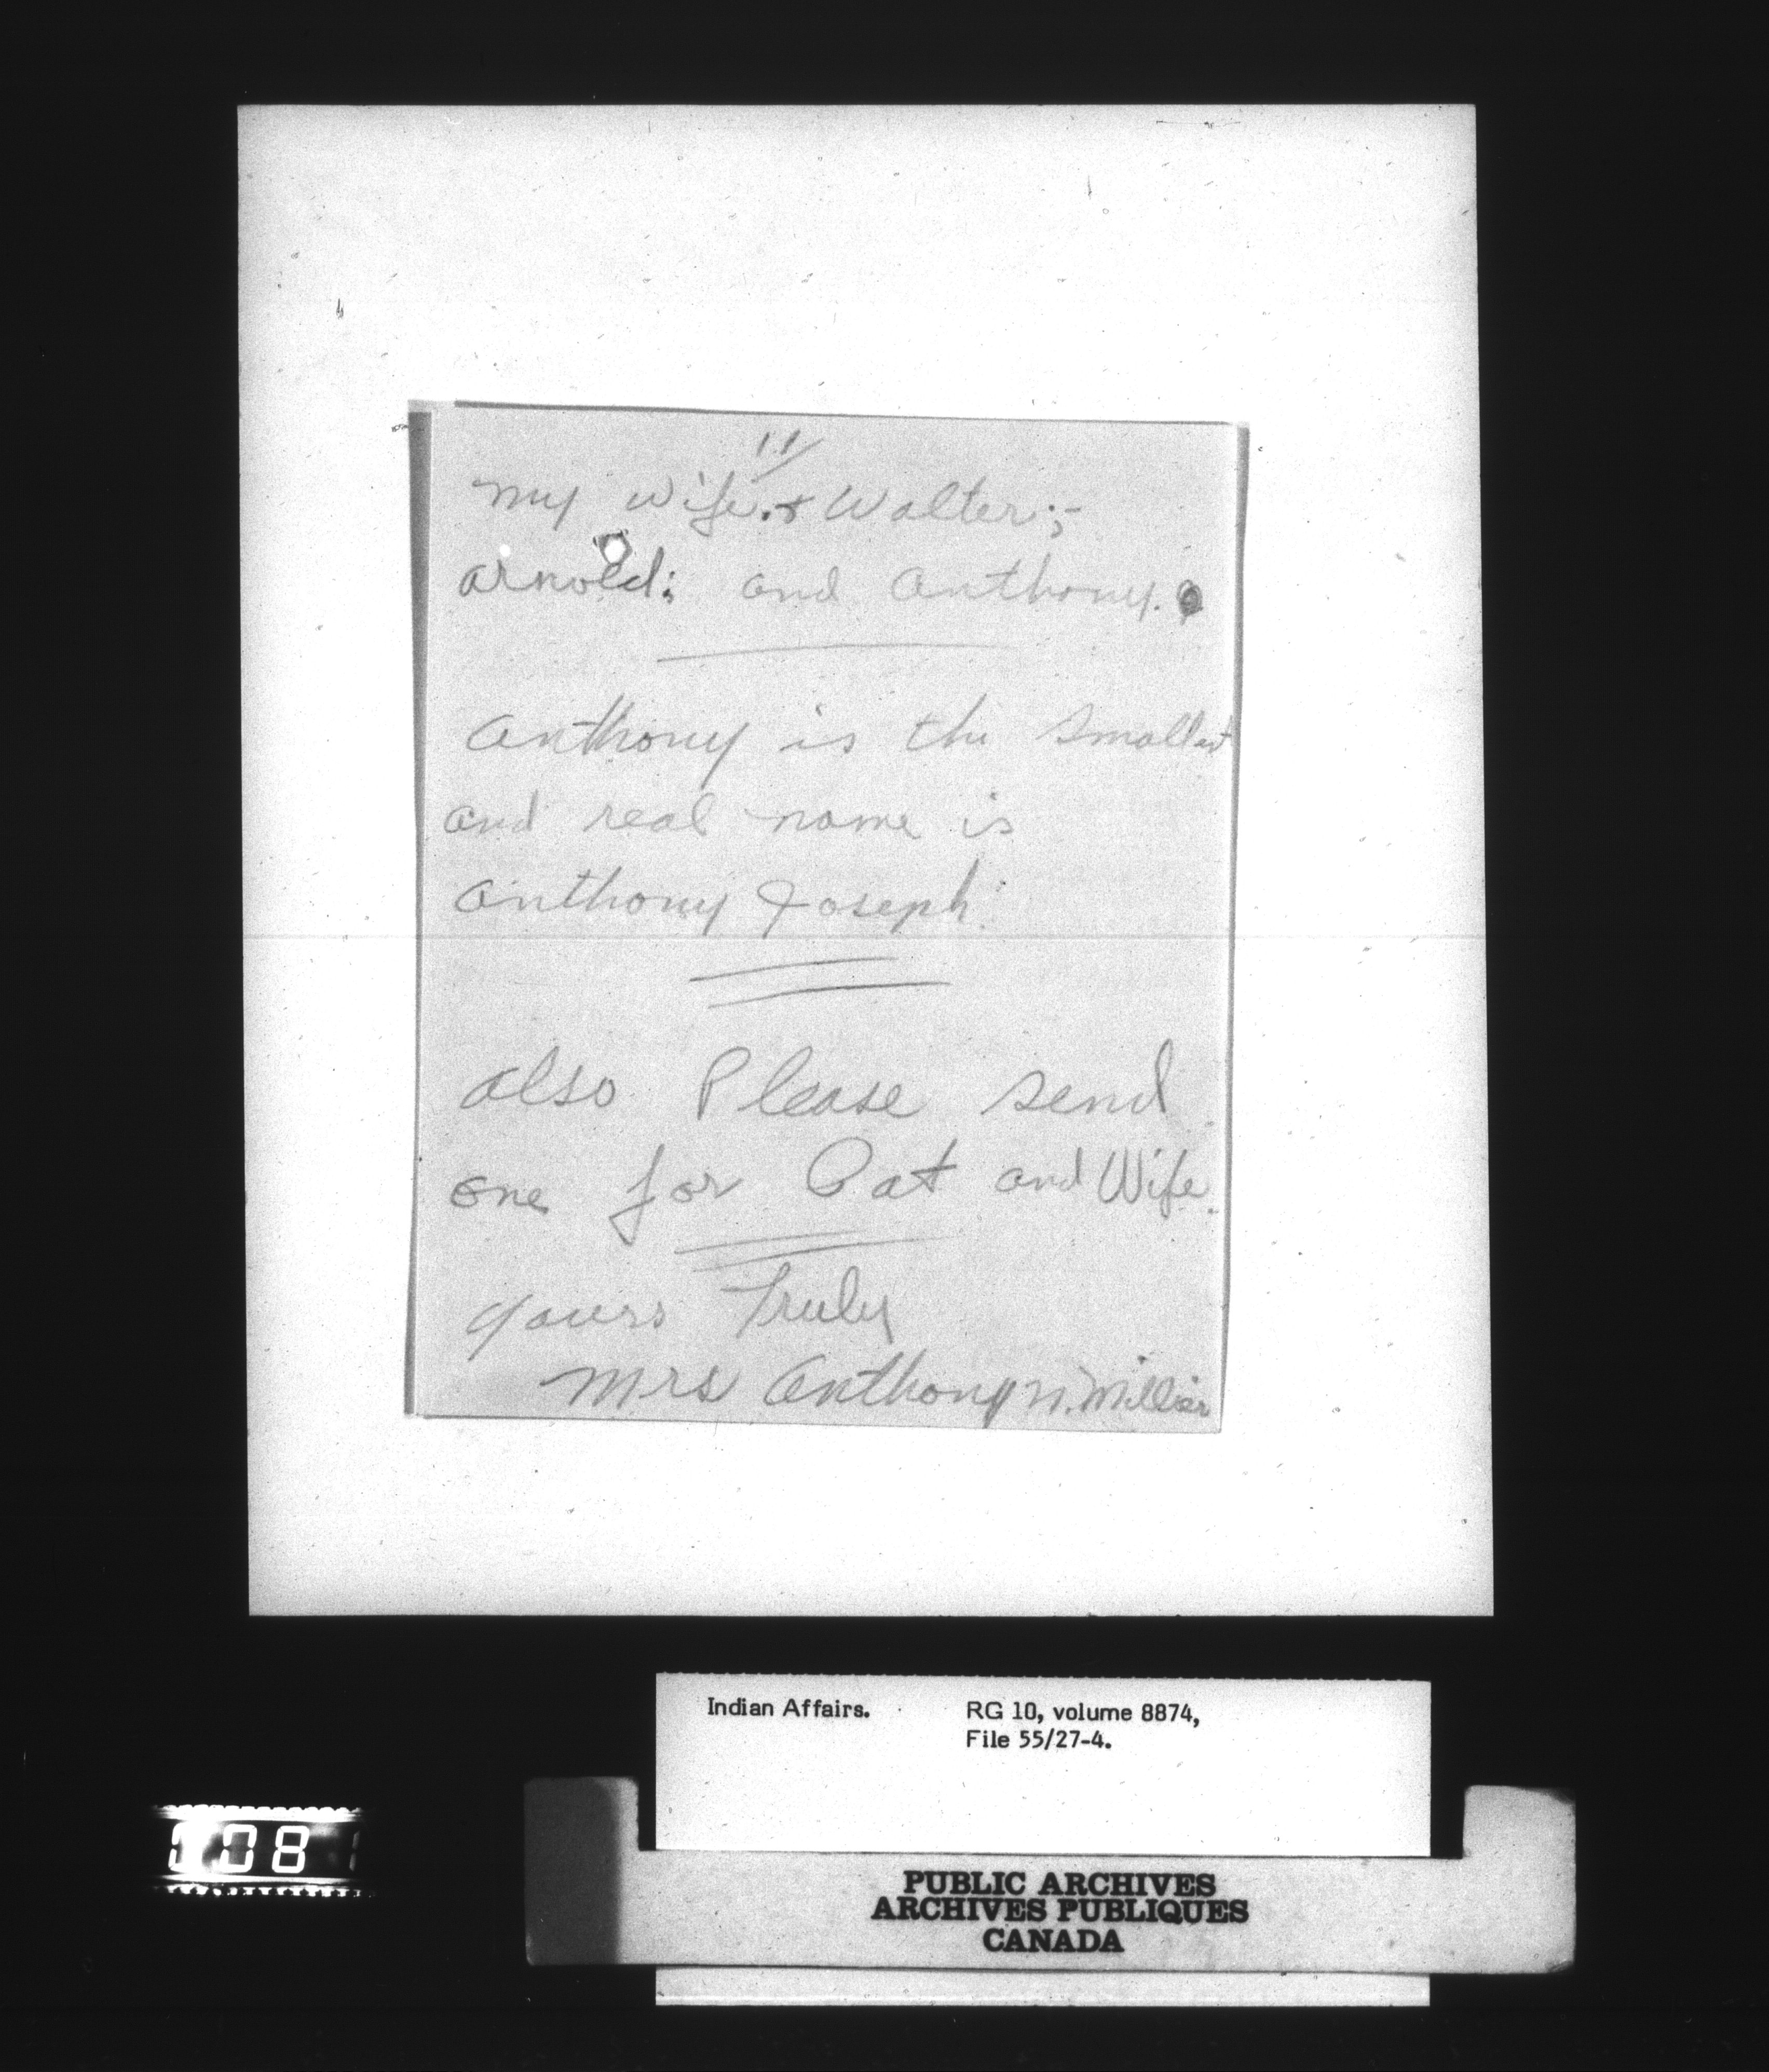 11
my wife. & Walter;-
arnold; and anthony.
anthony is the smallest
and real name is
anthony Joseph.
also Please send
one for Pat and Wife.
yours Truly
Mrs anthony N.
Indian Affairs. RG 10, volume 8874,
File 55/27-4.
081
PUBLIC ARCHIVES
ARCHIVES PUBLIQUES
CANADA